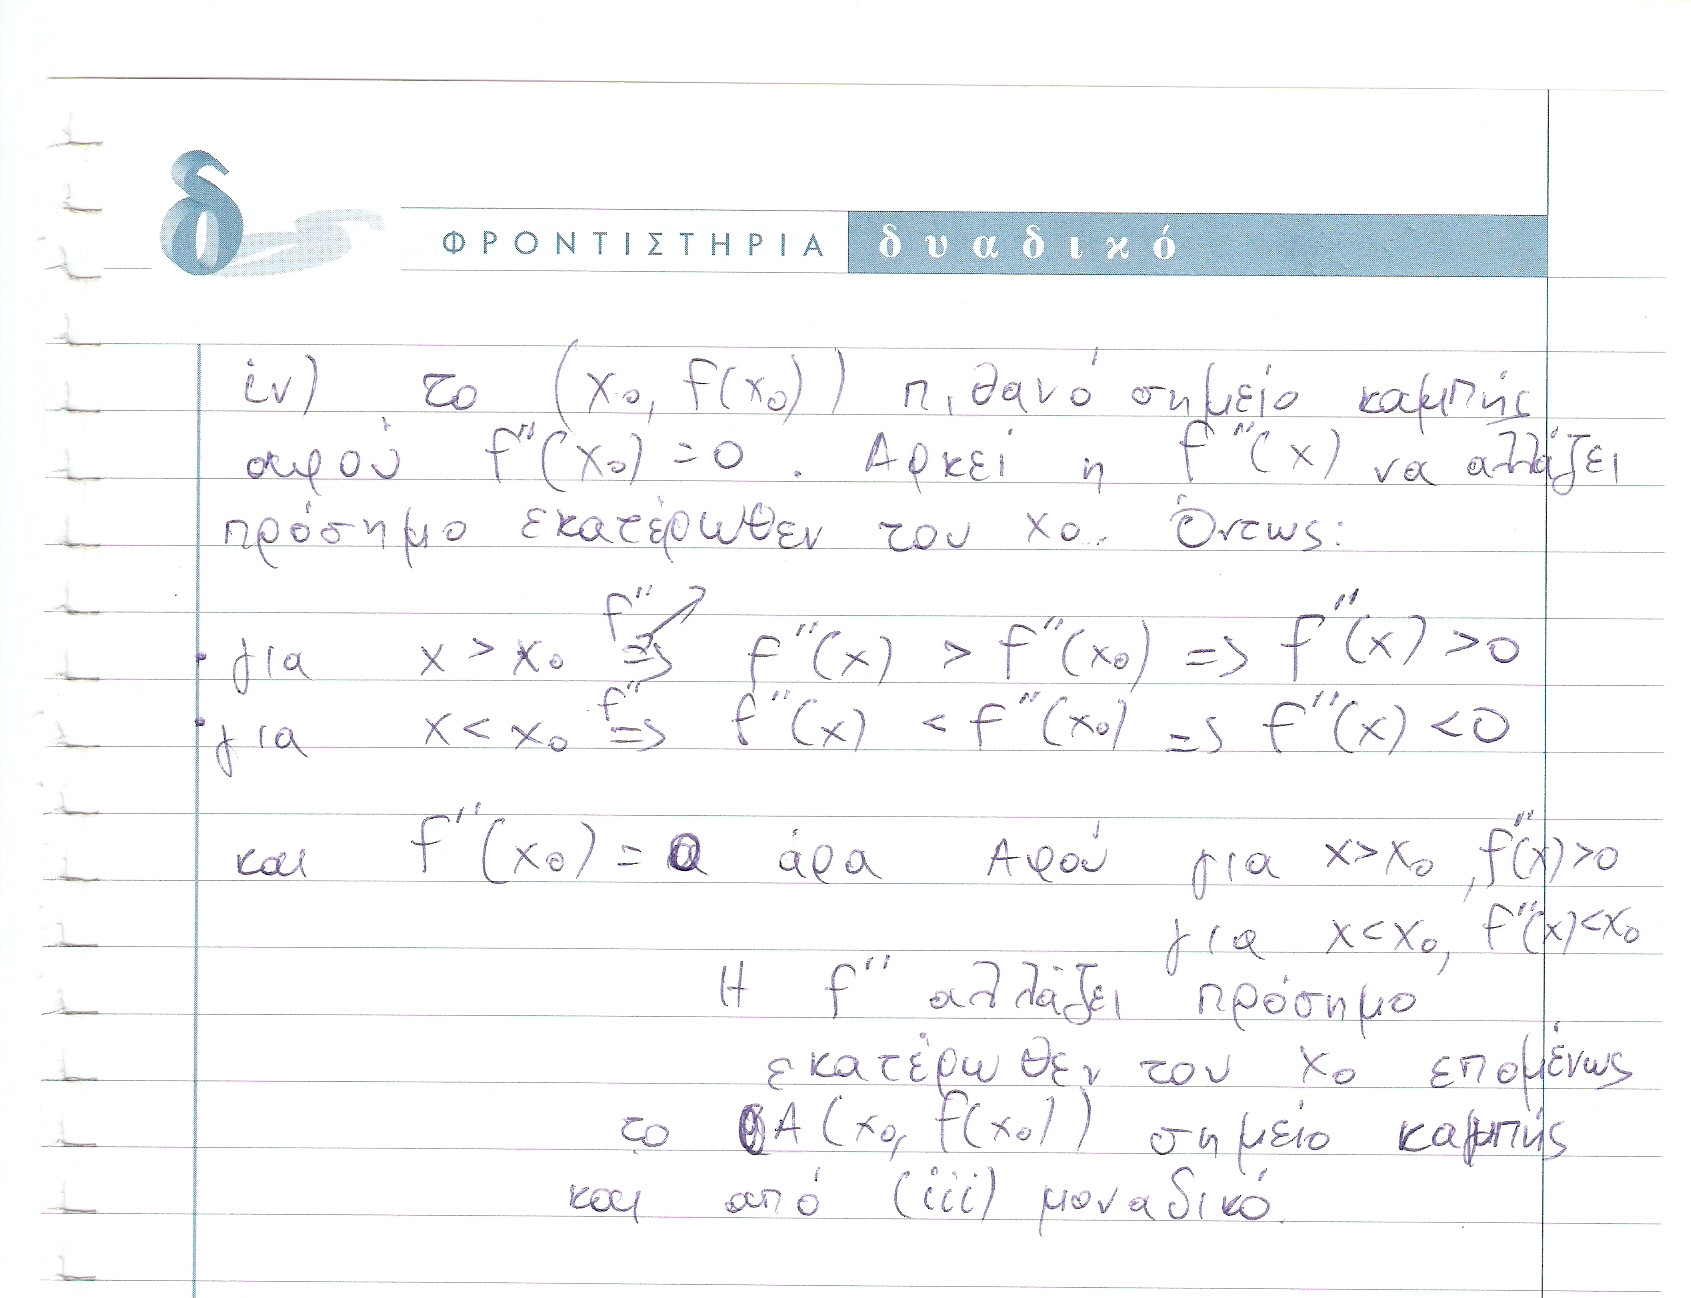 ΦΡΟΝΤΙΣΤΗΡΙΑ δυαδικό
iv) το (x₀, f(x₀)) πιθανό σημείο καμπής
αφού f''(x₀) = 0 . Αρκεί η f''(x) να αλλάζει
πρόσημο εκατέρωθεν του x₀. Όντως:
• για x > x₀ f''↗ => f''(x) > f''(x₀) => f''(x) > 0
• για x < x₀ f'' => f''(x) < f''(x₀) => f''(x) < 0
και f''(x₀) = 0 άρα Αφού για x > x₀, f''(x) > 0
για x < x₀, f''(x) < x₀
Η f'' αλλάζει πρόσημο
εκατέρωθεν του x₀ επομένως
το A(x₀, f(x₀)) σημείο καμπής
και από (iii) μοναδικό.